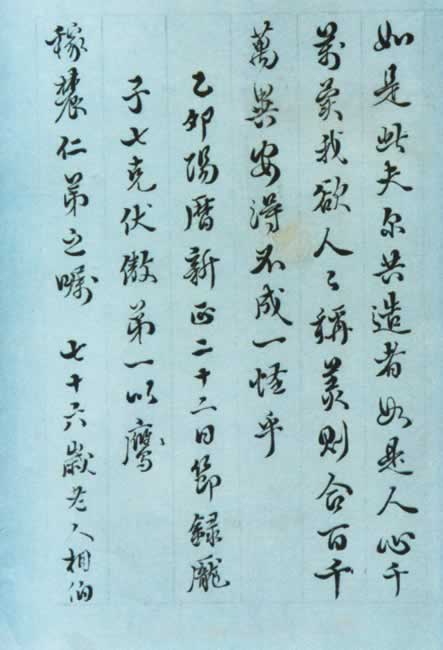 如是此夫尔共造者如是人心千
萬異我欲人々稱美則合百千
萬異安得不成一怪乎
乙卯陽曆新正二十二日節録龐
子七克伏傲第一以應
稼農仁弟之嘱 七十六歲老人相伯